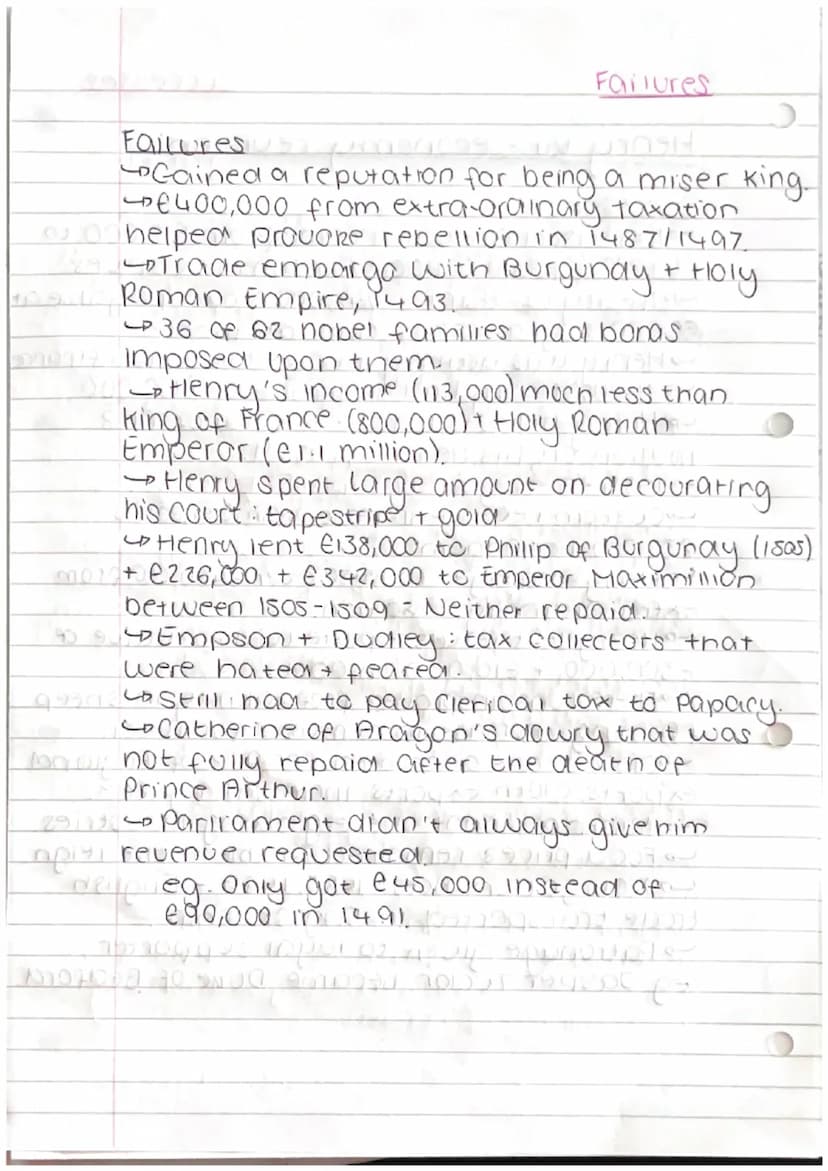 Failures
Failures
↳Gained a reputation for being a miser king.
↳£400,000 from extra-ordinary taxation
helped provoke rebellion in 1487/1497.
↳Trade embargo with Burgundy + Holy
Roman Empire, 1493.
↳36 of 62 nobel families had bonds
imposed upon them.
↳Henry's income (113,000) much less than
king of France (800,000) + Holy Roman
Emperor (£1.1 million).
↳Henry spent large amount on decourating
his court: tapestripe + gold
↳Henry lent £138,000 to Philip of Burgunay (1505)
+ £226,000 + £342,000 to Emperor Maximillion
between 1505-1509 - Neither repaid.
↳Empson + Dudley: tax collectors that
were hated + feared.
↳Still had to pay clerical tax to Papacy.
↳Catherine of Aragon's dowry that was
not fully repaid after the death of
Prince Arthur.
↳Parlrament didn't always give him
revenue requested.
eg. Only got £45,000 instead of
£90,000 in 1491.